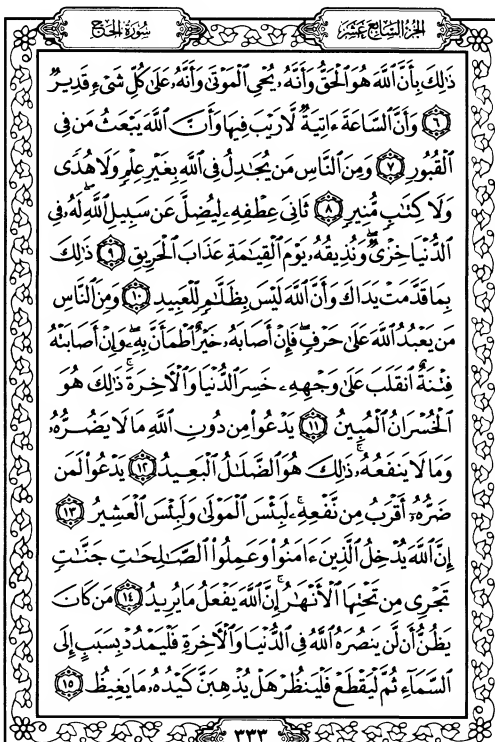 سُورَةُ الحَجّ
الجُزْءُ السَّابِعَ عَشَرَ
ذَٰلِكَ بِأَنَّ ٱللَّهَ هُوَ ٱلْحَقُّ وَأَنَّهُۥ يُحْىِ ٱلْمَوْتَىٰ وَأَنَّهُۥ عَلَىٰ كُلِّ شَىْءٍ قَدِيرٌ
٦ وَأَنَّ ٱلسَّاعَةَ ءَاتِيَةٌ لَّا رَيْبَ فِيهَا وَأَنَّ ٱللَّهَ يَبْعَثُ مَن فِى
ٱلْقُبُورِ ٧ وَمِنَ ٱلنَّاسِ مَن يُجَٰدِلُ فِى ٱللَّهِ بِغَيْرِ عِلْمٍ وَلَا هُدًى
وَلَا كِتَٰبٍ مُّنِيرٍ ٨ ثَانِىَ عِطْفِهِۦ لِيُضِلَّ عَن سَبِيلِ ٱللَّهِ ۖ لَهُۥ فِى
ٱلدُّنْيَا خِزْىٌ ۖ وَنُذِيقُهُۥ يَوْمَ ٱلْقِيَٰمَةِ عَذَابَ ٱلْحَرِيقِ ٩ ذَٰلِكَ
بِمَا قَدَّمَتْ يَدَاكَ وَأَنَّ ٱللَّهَ لَيْسَ بِظَلَّٰمٍ لِّلْعَبِيدِ ١٠ وَمِنَ ٱلنَّاسِ
مَن يَعْبُدُ ٱللَّهَ عَلَىٰ حَرْفٍ ۖ فَإِنْ أَصَابَهُۥ خَيْرٌ ٱطْمَأَنَّ بِهِۦ ۖ وَإِنْ أَصَابَتْهُ
فِتْنَةٌ ٱنقَلَبَ عَلَىٰ وَجْهِهِۦ خَسِرَ ٱلدُّنْيَا وَٱلْءَاخِرَةَ ۚ ذَٰلِكَ هُوَ
ٱلْخُسْرَانُ ٱلْمُبِينُ ١١ يَدْعُوا۟ مِن دُونِ ٱللَّهِ مَا لَا يَضُرُّهُۥ
وَمَا لَا يَنفَعُهُۥ ۚ ذَٰلِكَ هُوَ ٱلضَّلَٰلُ ٱلْبَعِيدُ ١٢ يَدْعُوا۟ لَمَن
ضَرُّهُۥٓ أَقْرَبُ مِن نَّفْعِهِۦ ۚ لَبِئْسَ ٱلْمَوْلَىٰ وَلَبِئْسَ ٱلْعَشِيرُ ١٣
إِنَّ ٱللَّهَ يُدْخِلُ ٱلَّذِينَ ءَامَنُوا۟ وَعَمِلُوا۟ ٱلصَّٰلِحَٰتِ جَنَّٰتٍ
تَجْرِى مِن تَحْتِهَا ٱلْأَنْهَٰرُ ۚ إِنَّ ٱللَّهَ يَفْعَلُ مَا يُرِيدُ ١٤ مَن كَانَ
يَظُنُّ أَن لَّن يَنصُرَهُ ٱللَّهُ فِى ٱلدُّنْيَا وَٱلْءَاخِرَةِ فَلْيَمْدُدْ بِسَبَبٍ إِلَى
ٱلسَّمَآءِ ثُمَّ لْيَقْطَعْ فَلْيَنظُرْ هَلْ يُذْهِبَنَّ كَيْدُهُۥ مَا يَغِيظُ ١٥
٣٣٣